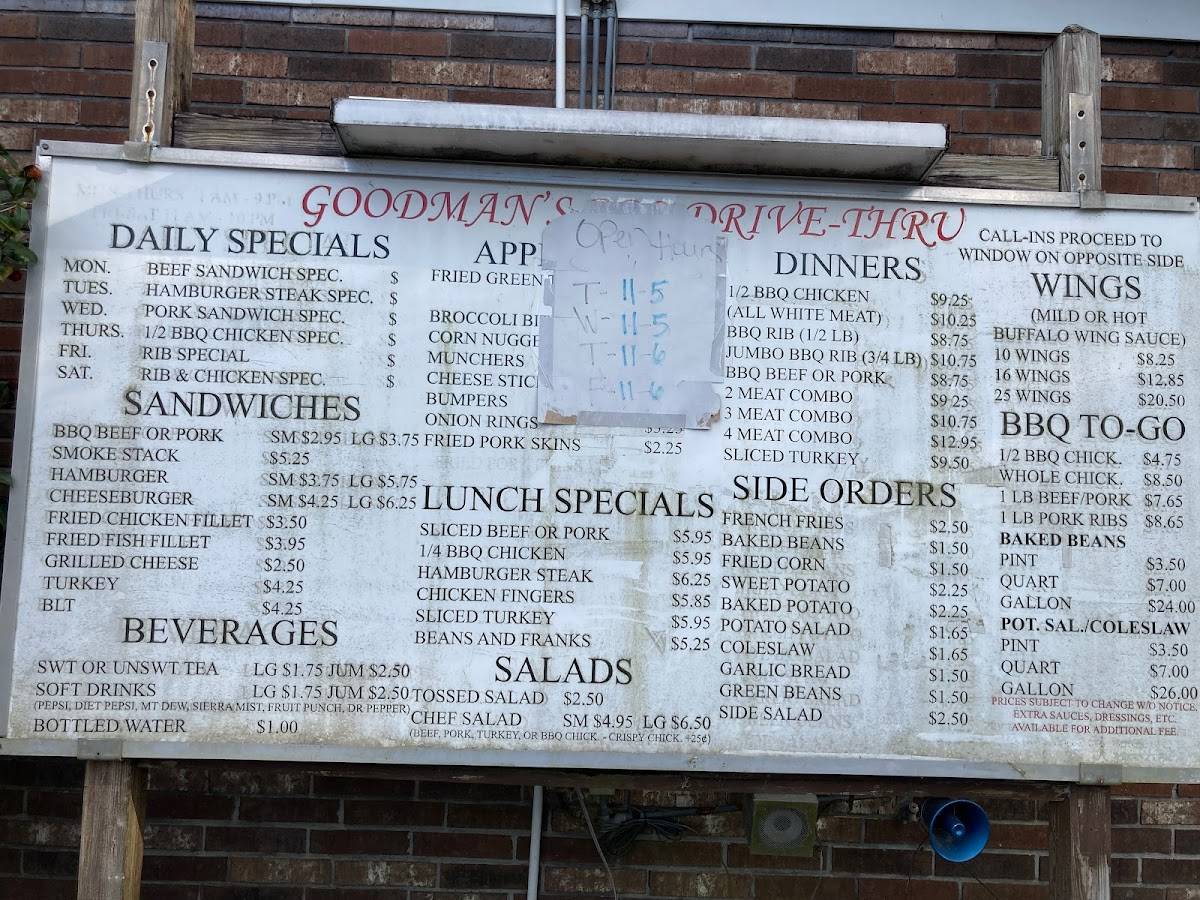 GOODMAN'S DRIVE-THRU
DAILY SPECIALS
MON. BEEF SANDWICH SPEC. $
TUES. HAMBURGER STEAK SPEC. $
WED. PORK SANDWICH SPEC. $
THURS. 1/2 BBQ CHICKEN SPEC. $
FRI. RIB SPECIAL $
SAT. RIB & CHICKEN SPEC. $
SANDWICHES
BBQ BEEF OR PORK SM $2.95 LG $3.75
SMOKE STACK $5.25
HAMBURGER SM $3.75 LG $5.75
CHEESEBURGER SM $4.25 LG $6.25
FRIED CHICKEN FILLET $3.50
FRIED FISH FILLET $3.95
GRILLED CHEESE $2.50
TURKEY $4.25
BLT $4.25
BEVERAGES
SWT OR UNSWT TEA LG $1.75 JUM $2.50
SOFT DRINKS LG $1.75 JUM $2.50
(PEPSI, DIET PEPSI, MT DEW, SIERRA MIST, FRUIT PUNCH, DR PEPPER)
BOTTLED WATER $1.00
APP
FRIED GREEN
BROCCOLI BI
CORN NUGGE
MUNCHERS
CHEESE STIC
BUMPERS
ONION RINGS
FRIED PORK SKINS $2.25
Open Hours
T- 11-5
W- 11-5
T- 11-6
F- 11-6
LUNCH SPECIALS
SLICED BEEF OR PORK $5.95
1/4 BBQ CHICKEN $5.95
HAMBURGER STEAK $6.25
CHICKEN FINGERS $5.85
SLICED TURKEY $5.95
BEANS AND FRANKS $5.25
SALADS
TOSSED SALAD $2.50
CHEF SALAD SM $4.95 LG $6.50
(BEEF, PORK, TURKEY, OR BBQ CHICK. - CRISPY CHICK. +25¢)
DINNERS
1/2 BBQ CHICKEN $9.25
(ALL WHITE MEAT) $10.25
BBQ RIB (1/2 LB) $8.75
JUMBO BBQ RIB (3/4 LB) $10.75
BBQ BEEF OR PORK $8.75
2 MEAT COMBO $9.25
3 MEAT COMBO $10.75
4 MEAT COMBO $12.95
SLICED TURKEY $9.50
SIDE ORDERS
FRENCH FRIES $2.50
BAKED BEANS $1.50
FRIED CORN $1.50
SWEET POTATO $2.25
BAKED POTATO $2.25
POTATO SALAD $1.65
COLESLAW $1.65
GARLIC BREAD $1.50
GREEN BEANS $1.50
SIDE SALAD $2.50
CALL-INS PROCEED TO
WINDOW ON OPPOSITE SIDE
WINGS
(MILD OR HOT
BUFFALO WING SAUCE)
10 WINGS $8.25
16 WINGS $12.85
25 WINGS $20.50
BBQ TO-GO
1/2 BBQ CHICK. $4.75
WHOLE CHICK. $8.50
1 LB BEEF/PORK $7.65
1 LB PORK RIBS $8.65
BAKED BEANS
PINT $3.50
QUART $7.00
GALLON $24.00
POT. SAL./COLESLAW
PINT $3.50
QUART $7.00
GALLON $26.00
PRICES SUBJECT TO CHANGE W/O NOTICE.
EXTRA SAUCES, DRESSINGS, ETC.
AVAILABLE FOR ADDITIONAL FEE